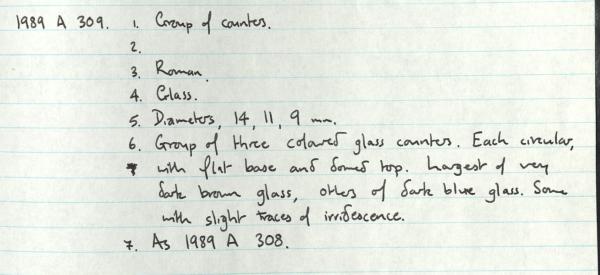 1989 A 309. 1. Group of counters.
2.
3. Roman.
4. Glass.
5. Diameters, 14, 11, 9 mm.
6. Group of three coloured glass counters. Each circular,
with flat base and domed top. Largest of very
dark brown glass, others of dark blue glass. Some
with slight traces of irridescence.
7. As 1989 A 308.